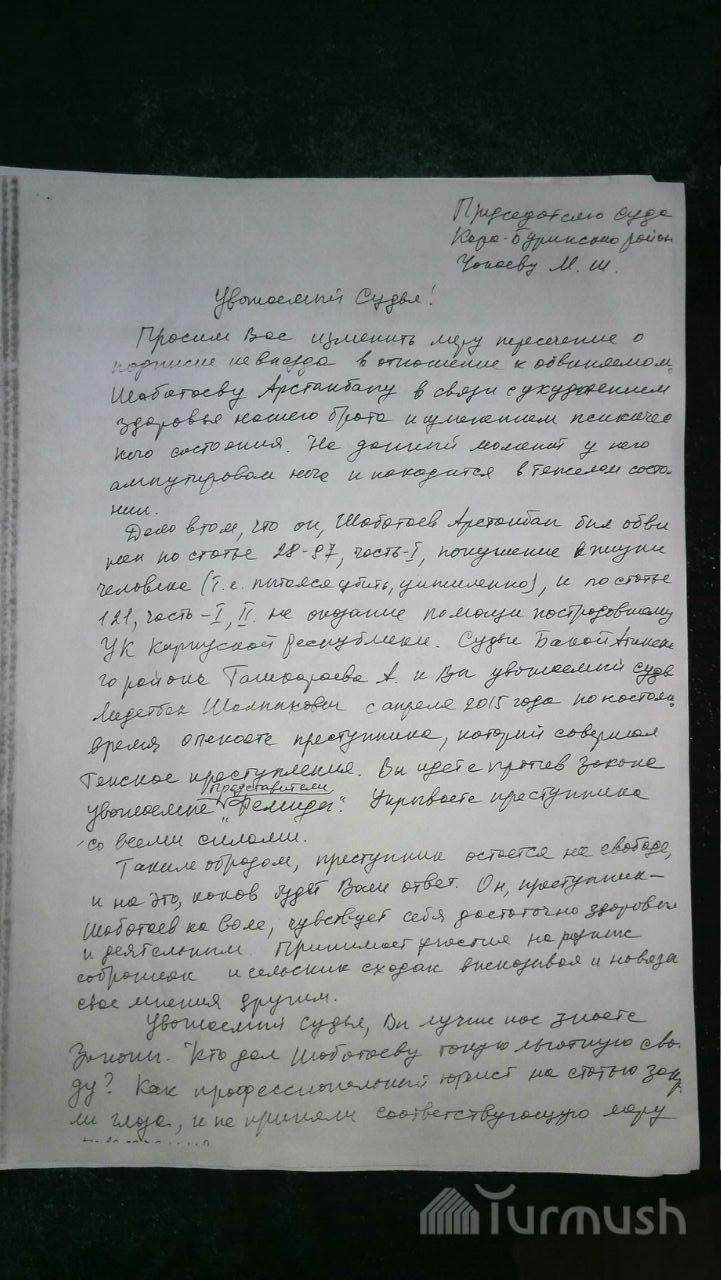 Председателю Суда
Кара-Буринского район
Чокоеву М. Ш.
Уважаемый Судья!
Просим Вас изменить меру пересечение о
подписке не выезда в отношение к обвиняемом
Шаботоеву Арстанбапу в связи с ухудшением
здоровье нашего брата и психичес
кого состояния. На данный момент у него
ампутирован нога и находится в тяжелом состоя
нии.
Дело в том, что он, Шаботоев Арстанбап был обви
нен по статье 28-97, часть-I, покушение к жизни
человека (т.е. пытался убить, умышленно), и по статье
121, часть-I, II. не оказание помощи пострадавшему
УК Каргуской Республики. Судьи Бакай Атинск
го района Ташбараева А. и Вы уважаемый судья
с апреля 2015 года по настоя
время опекаете преступника, который совершал
Тяжкое преступления. Вы идете против закона
представители
уважаемые "Фемиды". Укрываете преступника
со всеми силами.
Таким образом, преступник остается на свободе,
и на это, каков будет Ваш ответ. Он, преступник-
Шаботоев на воле, чувствует себя достаточно здоровым
и деятельным. Принимает участия на разных
собраниях и сельских сходах высказывая и навяза
свое мнения другим.
Уважаемый судья, Вы лучше нас знаете
Законы. "Кто дал Шаботоеву такую льготную сво-
ду? Как профессиональный юрист на статью закр
ли глаза, и не приняли соответствующую меру
Turmush